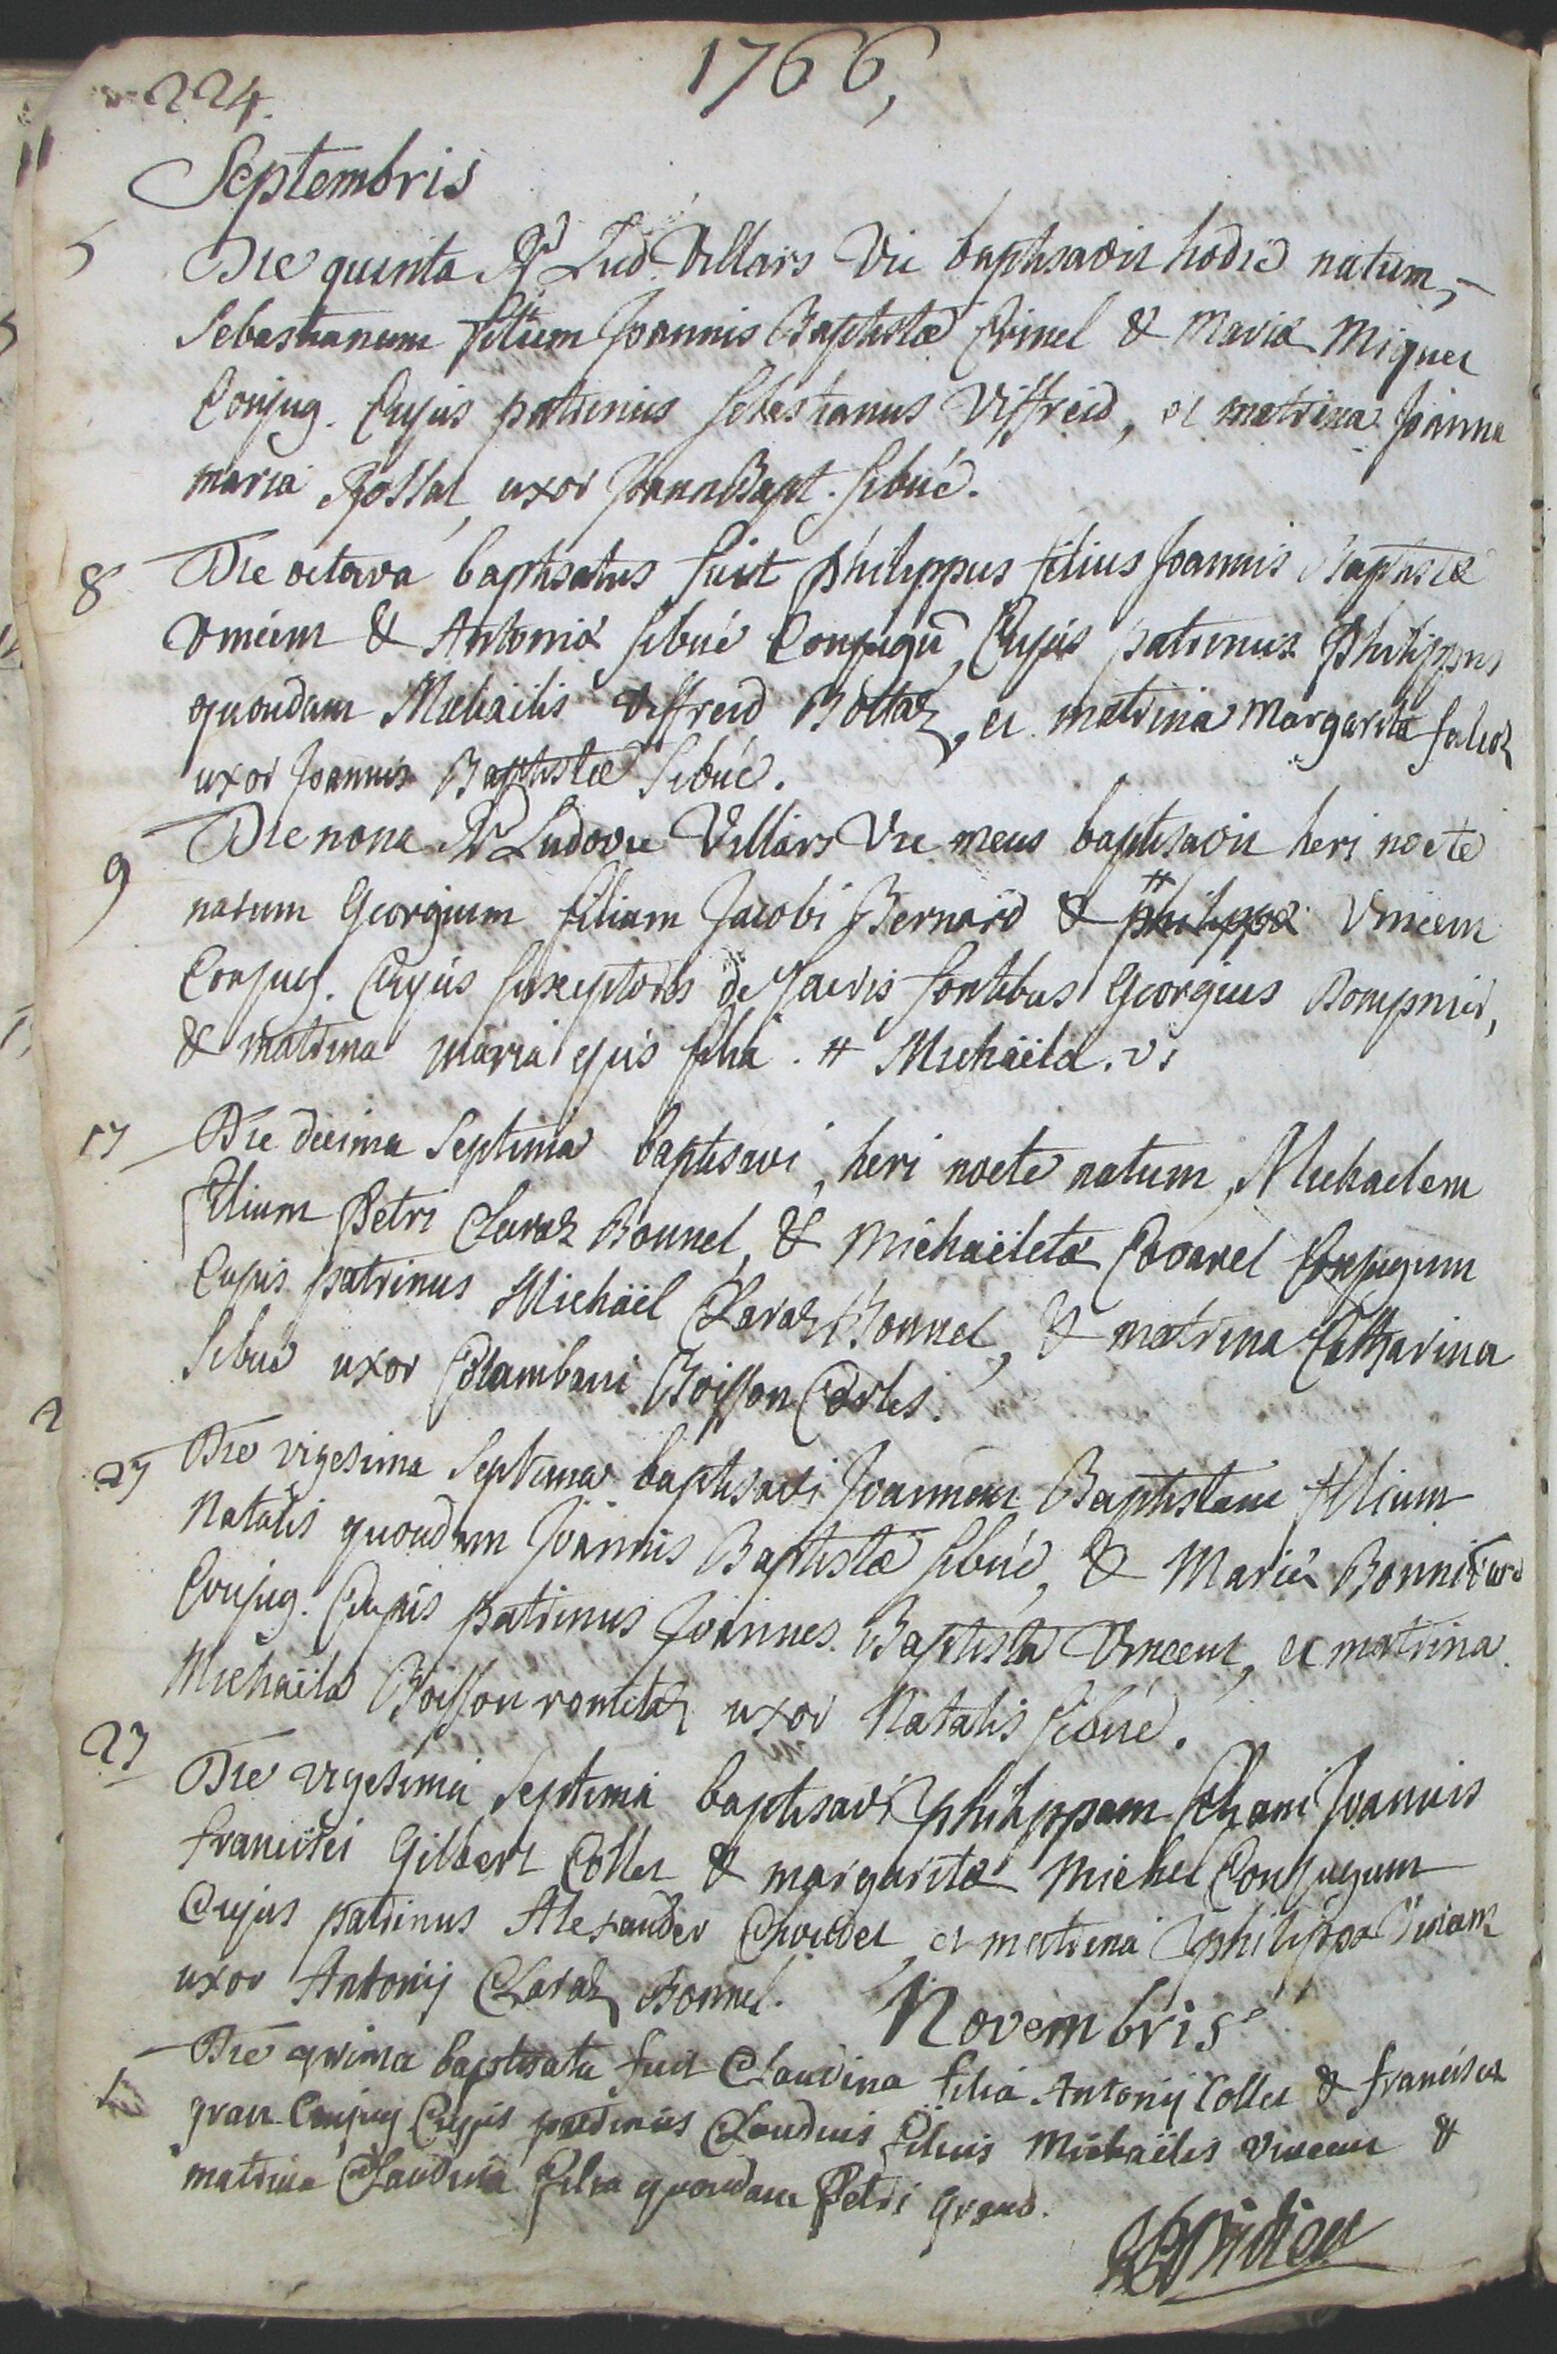 1766,
224.
Septembris
5 Die quinta Rd Lud Villars Vic baptisavit hodie natum,
Sebastianum filium Joannis Baptistæ Crinel & Mariæ Miguet
Conjug. Cujus patrinus Sebastianus Viffreid, et matrina Joanna
maria Rossat, uxor Joann Bapt. Sibué.
8 Die octava baptisatus fuit Philippus filius Joannis Baptistæ
Vincent & Antoniæ Sibué Conjugū, Cujus patrinus Philippus
quondam Michäelis Viffreid Bottaz, et matrina Margarita
uxor Joannis Baptistæ Sibué.
9 Die nona Rd Ludovic Villars Vic meus baptisavit heri nocte
natum Georgium filium Jacobi Bernard & # philippæ Vincent
Conjug. Cujus susceptores de sacris fontibus Georgius Dompnier,
& matrina maria ejus filia. # Michäelæ.
17 Die decima Septima baptisavi, heri nocte natum, Michaelem
filium Petri Claraz Bonnel, & Michäeletæ Covarel Conjugum
Cujus patrinus Michäel Claraz Bonnel, & matrina Catharina
Sibué uxor Colambani Boisson Carles.
27 Die vigesima Septima baptisavi Joannem Baptistam filium
Natalis quondam Joannis Baptistæ Sibué, & Mariæ Bonnivard
Conjug. Cujus patrinus Joannes Baptista Vincent, et matrina
Michäela Boisson rometaz uxor Natalis Sibué.
27 Die vigesima Septima baptisavi philippam filiam Joannis
francisci Gilbert Collet & margaritæ Michel Conjugum
Cujus patrinus Alexander Choudet, et matrina philippa
uxor Antonij Claraz Bonnel.
Novembris
1 Die prima baptisata fuit Claudina filia Antonij Collet & franciscæ
gran Conjug Cujus patrinus Claudius filius Michäelis Vincent &
matrina Claudina filia quondam Petri Grand.